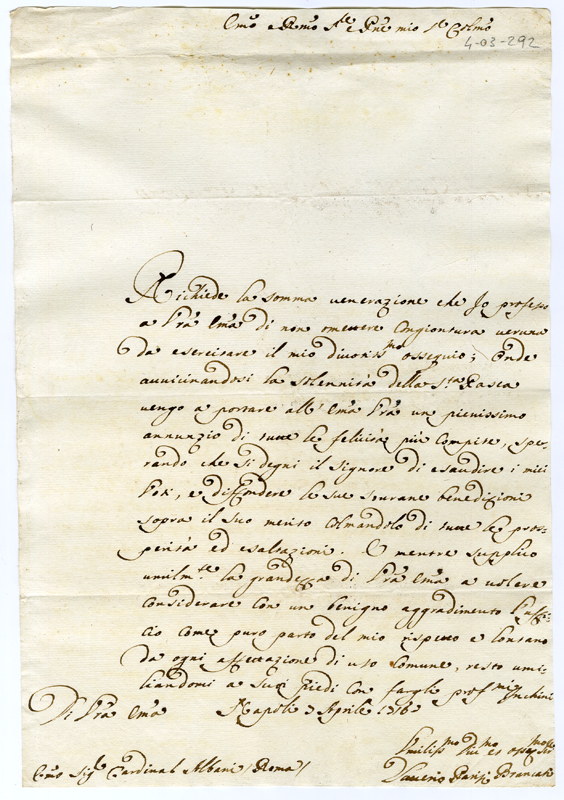 Emo e Rmo Sre e Pne mio Sr Colmo
4-03-292
Richiede la somma venerazione che Io professo
a Vra Ema di non omettere congiontura veruna
da esercitare il mio divotissmo ossequio; Onde
avvicinandosi la solennità della Sta Pasca
vengo a portare all' Ema Vra un pienissimo
annunzio di tutte le felicità più compite, spe-
rando che si degni il Signore di esaudire i miei
Voti, e diffondere le sue sourane benedizioni
sopra il suo merito colmandolo di tutte le pros-
perità ed esaltazioni. E mentre supplico
umilmte la grandezza di Vra Ema a volere
considerare con un benigno aggradimento l'uffi-
cio come puro parto del mio rispetto e lontano
da ogni affettazione di uso comune, resto umi-
liandomi a suoi Piedi con fargli profmi Inchini
Di Vra Ema Napoli 3 Aprile 1716
Umilissmo Divmo et ossequmo
Emo Sigr Cardinal Albani / Roma / Saverio Parisi Brancati